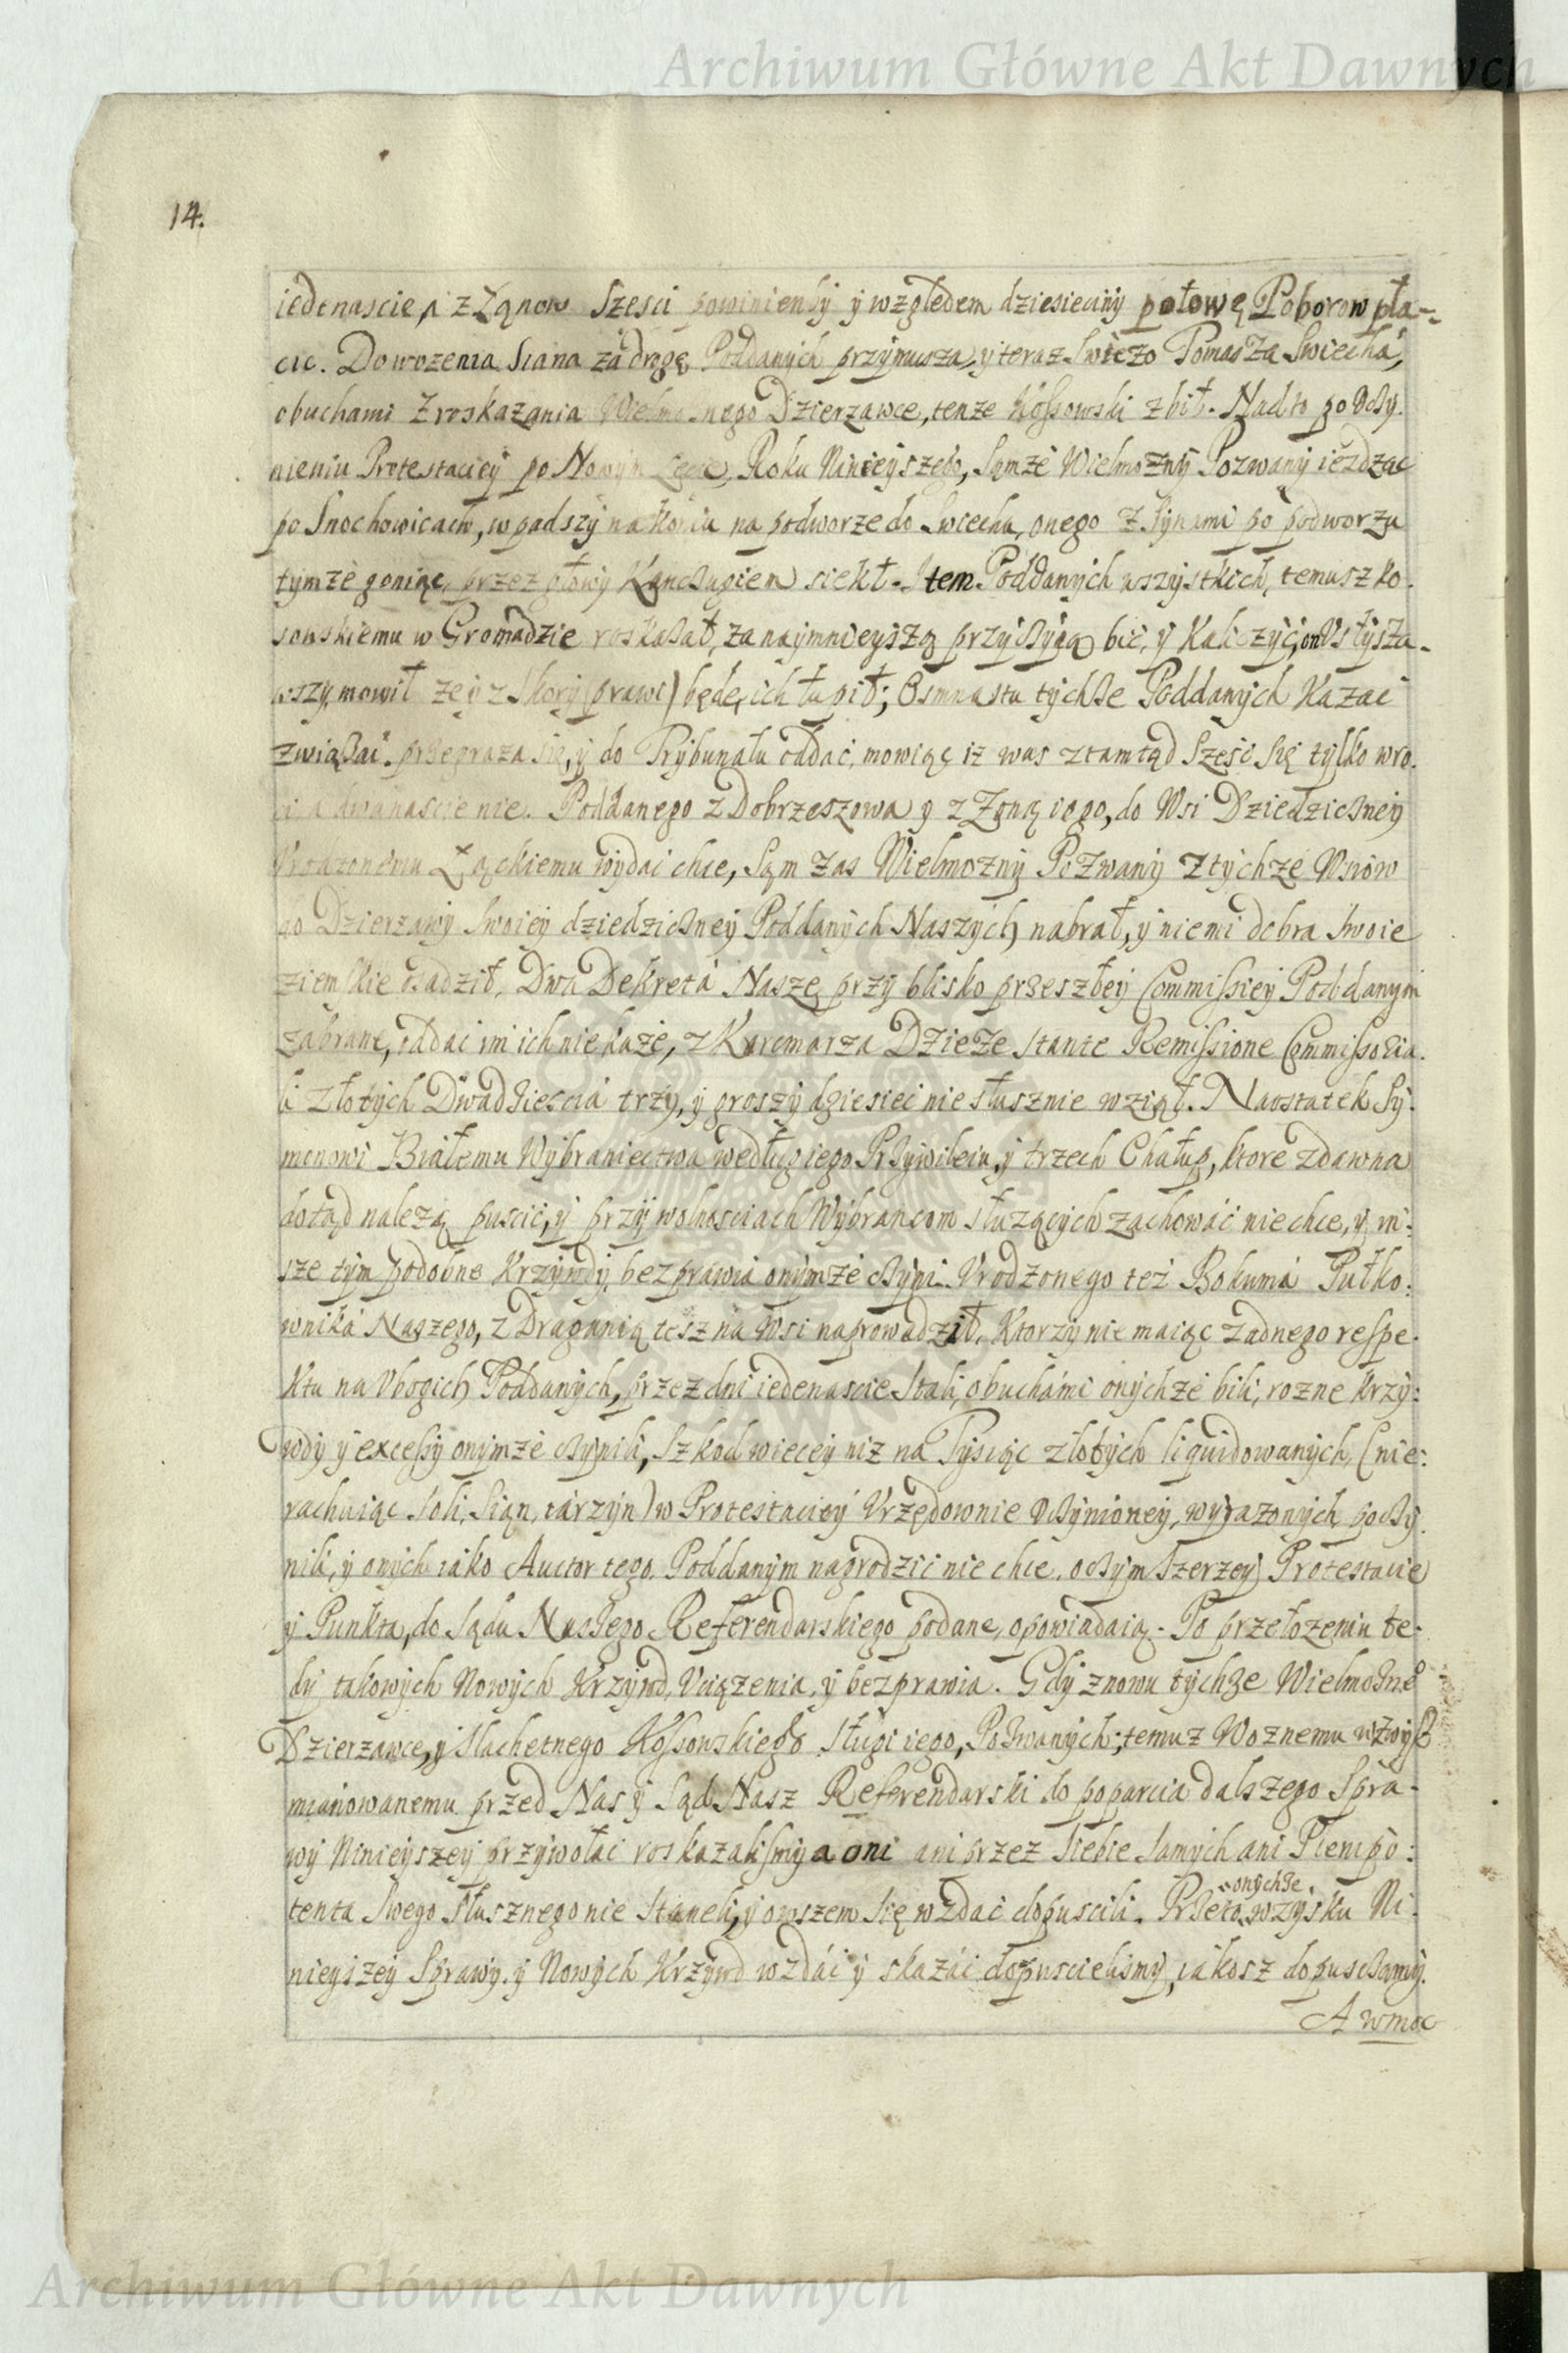 Archiwum Główne Akt Dawnych
14.
iedenascie, z Łąnow Szesci powinien by y względem dziesieciny połowę Poborow pła-
cic. Do wozenia Siana zá drogę Poddanych przymusza, y teraz Swiezo Tomasza Swiechá,
obuchami z roskazania Wielmoznego Dzierzawce, tenze Kossowski zbił. Nadto po Vczy.
nieniu Protestaciey po Nowym Lecie, Roku Ninieyszego, Sąmze Wielmozny Pozwany iezdzac
po Snochowicach, wpadszy na koniu na podworze do Swiecha, onego z Synami po podworzu
tymze goniąc, przez głowy Kanczugiem siekł. Item Poddanych wszystkich, temusz Ko.
sowskiemu w Gromadzie roskazał, za naymnieyszą przyczyną bic, y Kaliczyc, on Vsłysza-
wszy, mowił ze y z skory (prawi) będę ich łupił; Osmnastu tychze Poddanych Kazac
związac przegraza się, y do Trybunału oddac, mowiąc iz was ztamtąd Szesc się tylko wro.
ci a dwanascie nie. Poddanego z Dobrzeszowa y z Zoną iego, do Wsi Dziedziczney
Vrodzonemu Łąckiemu wydac chce, Sąm zas Wielmozny Pozwany z tychze Wsiow
do Dzierzawy Swoiey dziedziczney Poddanych Naszych nabrał, y niemi dobra Swoie
ziemskie osadził, Dwa Dekretá Nasze przy blisko przeszłey Commissiey Poddanym
zabrane, oddac im ich nie kaze, z Karcmarza Dzieze stante Remissione Commissoria.
li złotych Dwadziescia trzy, y groszy dziesiec nie słusznie wziął. Naostatek Sy.
monowi Białemu Wybraniectwa według iego Przywileiu, y trzech Chałup, ktore zdawna
dotąd nalezą puscic, y przy wolnosciach Wybrancom słuzących zachowac nie chce, y in:
sze tym podobne Krzywdy, bezprawia onymze czyni. Vrodzonego tez Bokumá Pułko:
wniká Naszego, z Draganią tesz na Wsi naprowadził, Ktorzy nie maiąc zadnego respe.
ktu na Vbogich Poddanych, przez dni iedenascie Stali, obuchámi onychze bili, rozne krzy:
wdy y excessy onymze czynili, Szkod wiecey niz na Tysiąc złotych liquidowanych, (nie:
rachuiąc Soli, Sian, iárzyn) w Protestaciey Vrzędownie Vczynioney, wyrazonych poczy.
nili, y onych iako Auctor tego, Poddanym nagrodzic nie chce, o czym szerzey Protestacie
y Punkta, do Sądu Naszego Referendarskiego podane, opowiadaią. Po przełozeniu te-
dy takowych Nowych Krzywd, Vciązenia, y bezprawia. Gdy znowu tychze Wielmozne°
Dzierzawce, y Slachetnego Kossowskiego Sługi iego, Pozwanych; temuz Woznemu wzwysz
mianowanemu przed Nas y Sąd Nasz Referendarski do poparcia dalszego Spra-
wy Ninieyszey przywołac roskazalismy a oni ani przez siebie samych ani Plenipo:
tenta Swego słusznego nie Staneli, y owszem się wzdac dopuscili. Przeto onychze w zysku Ni.
nieyszey Sprawy, y Nowych Krzywd wzdác y skazác dopuscielismy, iákosz dopusczamy.
A wmoc
Archiwum Główne Akt Dawnych